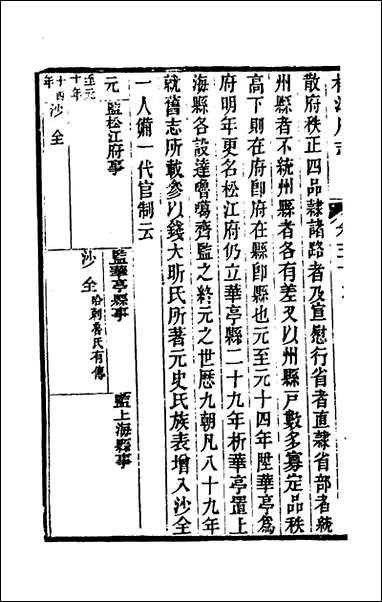 散府秩正四品隸諸路者及宣慰行省者直隸省部者統
州縣者不統州縣者各有差又以州縣戸數多寡定品秩
高下則在府卽府在縣卽縣也元至元十四年陞華亭爲
府明年更名松江府仍立華亭縣二十九年析華亭置上
海縣各設達魯噶齊監之終元之世歷九朝凡八十九年
就舊志所載參以錢大昕氏所著元史氏族表增入沙全
一人備一代官制云
元
監松江府事
監華亭縣事
監上海縣事
至元
十年
沙全
哈剌魯氏有傳
十四
年
沙全